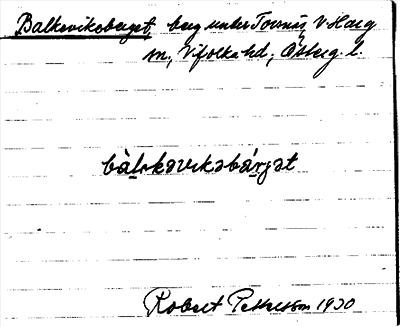 Balksviksberget berg under Tornås, V-Harg
sn, Vifolka hd, Österg. l.
bàlskəvikəbárjət
Robert Pettersson 1930